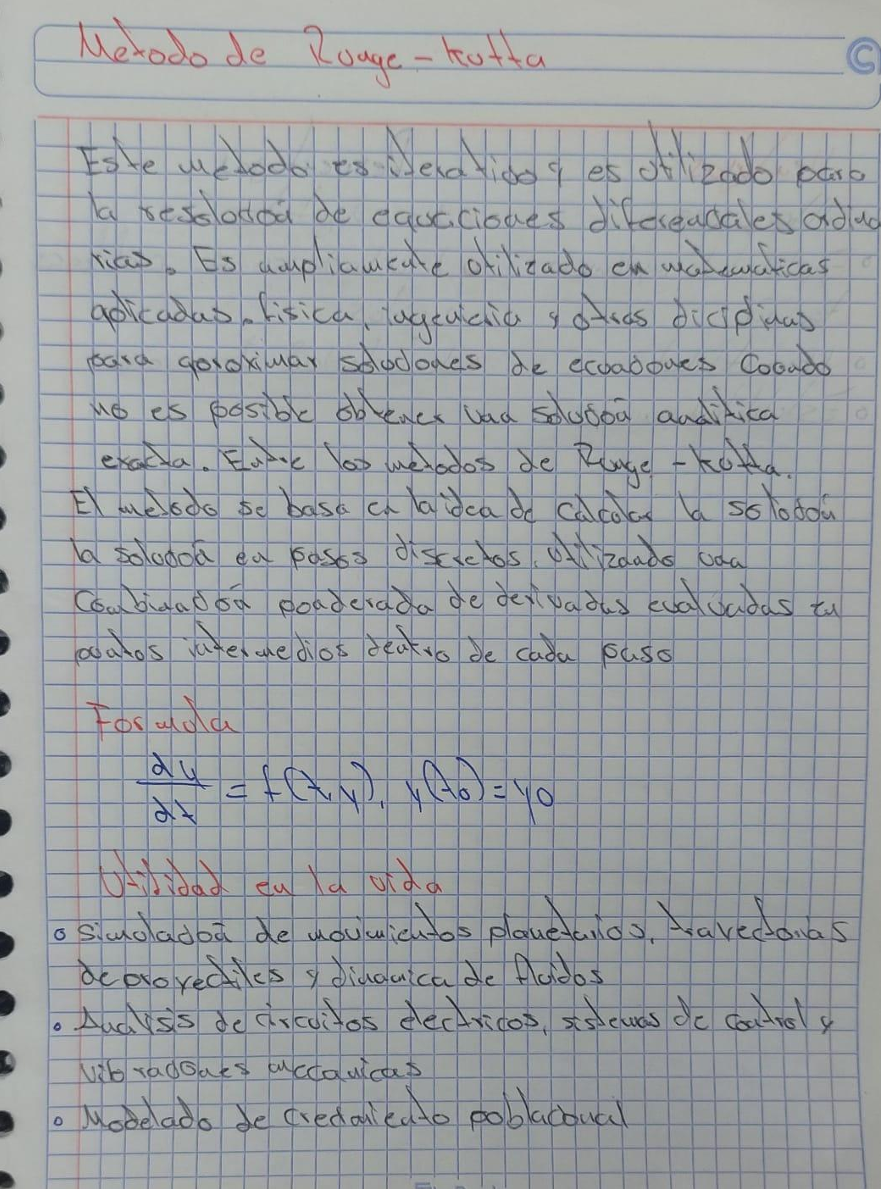 Metodo de Runge-kutta
Este metodo es iterativo y es utilizado para
la resolucion de ecuaciones diferenciales ordina
rias. Es ampliamente utilizado en matematicas
aplicadas, fisica, ingenieria y otras diciplinas
para aproximar soluciones de ecuaciones Cuando
no es posible obtener una solucion analitica
exacta. Entre los metodos de Runge-kutta.
El metodo se basa en la idea de calcular la solucion
la solucion en pasos discretos, utilizando una
Combinacion ponderada de derivadas evaluadas en
puntos intermedios dentro de cada paso
Formula
dy/dt = f(t,y), y(t0)=y0
Utilidad en la vida
o Simulacion de movimientos planetarios, trayectorias
de proyectiles y dinamica de fluidos
o Analysis de circuitos electricos, sistemas de control y
vibraciones mecanicas
o Modelado de crecimiento poblacional